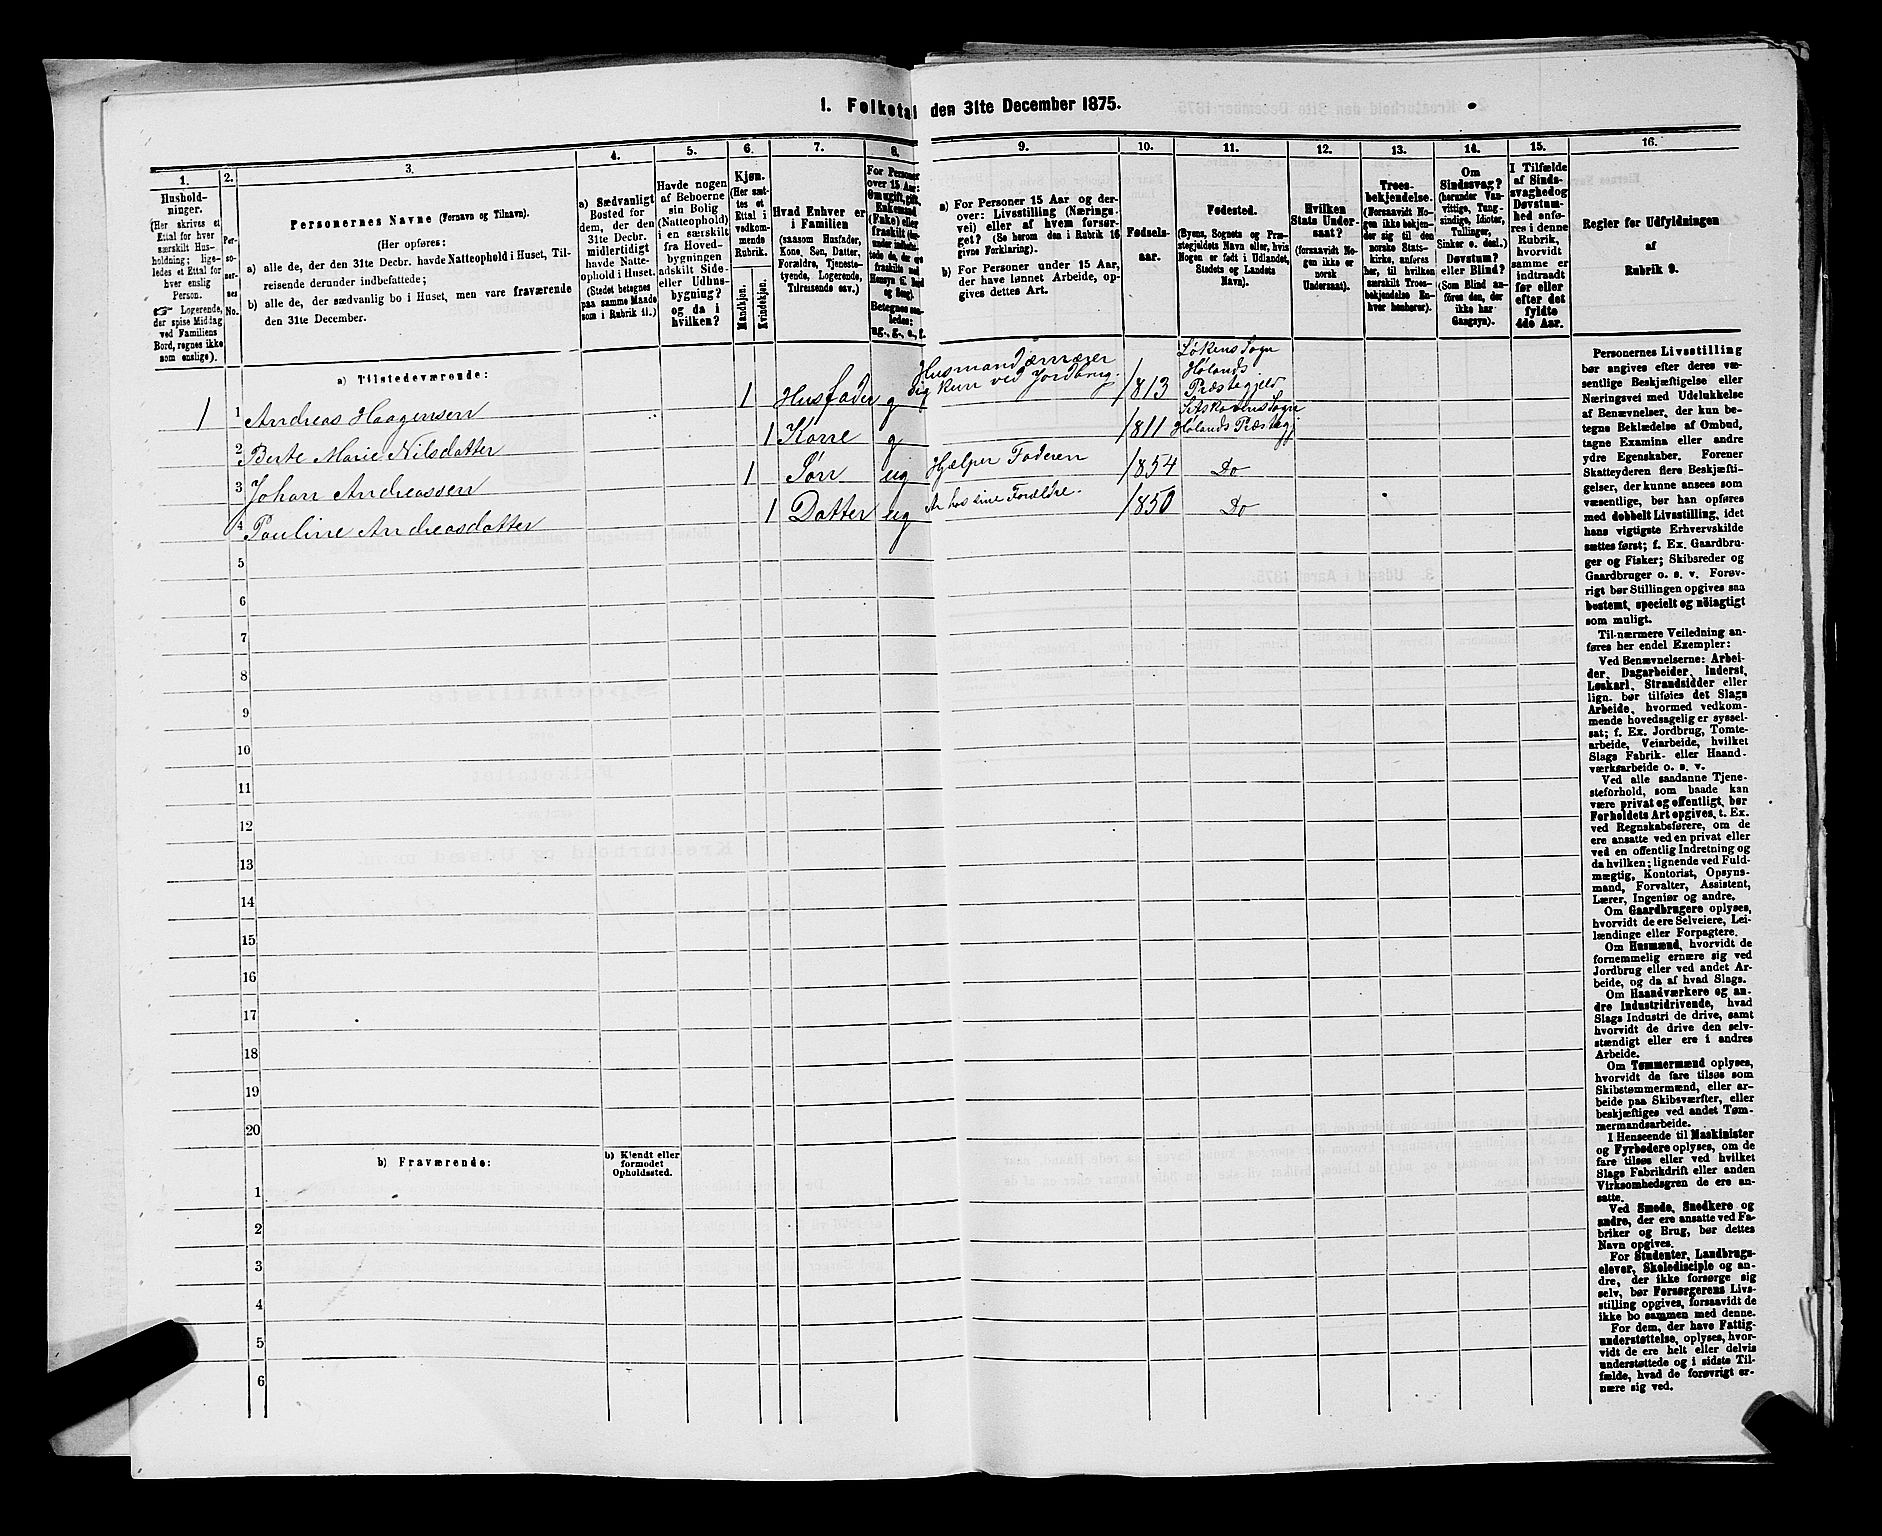 1. Folketal den 31te December 1875.
1.
Hushold-
ninger.
(Her skrives et
Ettal for hver
særskilt Hus-
holdning; lige-
ledes et Ettal for
hver enslig
Person.
☞ Logerende,
der spise Middag
ved Familiens
Bord, regnes ikke
som enslige).
2.
Per-
so-
ner-
nes
No.
3.
Personernes Navne (Fornavn og Tilnavn).
(Her opføres:
a) alle de, der den 31te Decbr. havde Natteophold i Huset, Til-
reisende derunder indbefattede;
b) alle de, der sædvanlig bo i Huset, men vare fraværende
den 31te December.
4.
a) Sædvanligt
Bosted for
dem, der den
31te Decbr.
midlertidigt
havde Natte-
ophold i Huset.
(Stedet betegnes
paa samme Maade
som i Rubrik 11.)
5.
Havde nogen
af Beboerne
sin Bolig
(Natteophold)
i en særskilt
fra Hoved-
bygningen
adskilt Side-
eller Udhus-
bygning?
og da i
hvilken?
6.
Kjøn.
(Her sæt-
tes et
Ettal i
vedkom-
mende
Rubrik.
Mandkjøn.
Kvindekjøn.
7.
Hvad Enhver er
i Familien
(saasom Husfader,
Kone, Søn, Datter,
Forældre, Tjeneste-
tyende, Logerende,
Tilreisende osv.)
8.
For Personer
over 15 Aar:
Om ugift, gift,
Enkemand
(Enke) eller
fraskilt
Betegnes saa-
ledes:
ug., g., e., f.
9.
a) For Personer 15 Aar og der-
over: Livsstilling (Nærings-
vei) eller af hvem forsør-
get? (Se herom den i Rubrik 16
givne Forklaring).
b) For Personer under 15 Aar,
der have lønnet Arbeide, op-
gives dettes Art.
10.
Fødsels-
aar.
11.
Fødested.
(Byens, Sognets og Præ-
stegjeldets Navn eller, hvis
Nogen er født i Udlandet,
Stedets og Landets
Navn).
12.
Hvilken
Stats Under-
saat?
(forsaavidt No-
gen ikke er
norsk
Undersaat).
13.
Troes-
bekjendelse.
(Forsaavidt No-
gen ikke bekjen-
der sig til den
norske Stats-
kirke, anføres
her, til hvilken
særskilt Troes-
bekjendelse En-
hver henhører).
14.
Om
Sindssvag?
(herunder Van-
vittige, Tung-
sindige, Idioter,
Tullinger,
Sinker o. desl.)
Døvstum?
eller Blind?
(Som Blind an-
føres den, der
ikke har
Gangsyn).
15.
I Tilfælde
af Sinds-
svaghed og
Døvstum-
hed anfø-
res i denne
Rubrik,
hvorvidt
samme er
indtraadt
før eller
efter det
fyldte
4de Aar.
16.
Regler for Udfyldningen
af
Rubrik 9.
a) Tilstedeværende:
1 1 Andreas Haagensen 1 Husfader g Husmand ærnærer sig kun ved Jordbrug. 1813 Løkens Sogn Hølands Præstegjeld
2 Berte Marie Nilsdatter 1 Kone g 1811 Setskovens Sogn Hølands Præstegj
3 Johan Andreassen 1 Søn ug Hjælper Faderen 1854 Do
4 Pauline Andreasdatter 1 Datter ug Er hos sine Forældre. 1850 Do
5
6
7
8
9
10
11
12
13
14
15
16
17
18
19
20
b) Fraværende:
b) Kjendt eller
formodet
Opholdssted.
1
2
3
4
5
6
Personernes Livsstilling
bør angives efter deres væ-
sentlige Beskjæftigelse eller
Næringsvei med Udelukkelse
af Benævnelser, der kun be-
tegne Beklædelse af Ombud,
tagne Examina eller andre
ydre Egenskaber. Forener
Skatteyderen flere Beskjæfti-
gelser, der kunne ansees som
væsentlige, bør han opføres
med dobbelt Livsstilling, idet
hans vigtigste Erhvervskilde
sættes først; f. Ex. Gaardbru-
ger og Fisker; Skibsreder og
Gaardbruger o. s. v. Forøv-
rigt bør Stillingen opgives saa
bestemt, specielt og nöiagtigt
som muligt.
Til nærmere Veiledning an-
føres her endel Exempler:
Ved Benævnelserne: Arbei-
der, Dagarbeider, Inderst,
Løskarl, Strandsidder eller
lign. bør tilføies det Slags
Arbeide, hvormed vedkom-
mende hovedsagelig er syssel-
sat; f. Ex. Jordbrug, Tomte-
arbeide, Veiarbeide, hvilket
Slags Fabrik- eller Haand-
værksarbeide o. s. v.
Ved alle saadanne Tjene-
steforhold, som baade kan
være privat og offentligt, bør
Forholdets Art opgives, t. Ex.
ved Regnskabsførere, om de
ere ansatte ved en privat eller
ved en offentlig Indretning og
da hvilken; lignende ved Fuld-
mægtig, Kontorist, Opsyns-
mand, Forvalter, Assistent,
Lærer, Ingeniør og andre.
Om Gaardbrugere oplyses,
hvorvidt de ere Selveiere, Lei-
lændinge eller Forpagtere.
Om Husmænd, hvorvidt de
fornemmelig ernære sig ved
Jordbrug eller ved andet Ar-
beide, og da af hvad Slags.
Om Haandværkere og an-
dre Industridrivende, hvad
Slags Industri de drive, samt
hvorvidt de drive den selv-
stændigt eller ere i andres
Arbeide.
Om Tømmermænd oplyses,
hvorvidt de fare tilsøs som
Skibstømmermænd, eller ar-
beide paa Skibsværfter, eller
beskjæftiges ved andet Tøm-
mermandsarbeide.
I Henseende til Maskinister
og Fyrbødere oplyses, om de
fare tilsøs eller ved hvilket
Slags Fabrikdrift eller anden
Virksomhedsgren de ere an-
satte.
Ved Smede, Snedkere og
andre, der ere ansatte ved Fa-
briker og Brug, bør dettes
Navn opgives.
For Studenter, Landbrugs-
elever, Skoledisciple og an-
dre, der ikke forsørge sig
selv, bør Forsørgerens Livs-
stilling opgives, forsaavidt de
ikke bo sammen med denne.
For dem, der have Fattig-
understøttelse, oplyses, hvor-
vidt de ere helt eller delvis
understøttede og i sidste Til-
fælde, hvad de forøvrigt er-
nære sig ved.